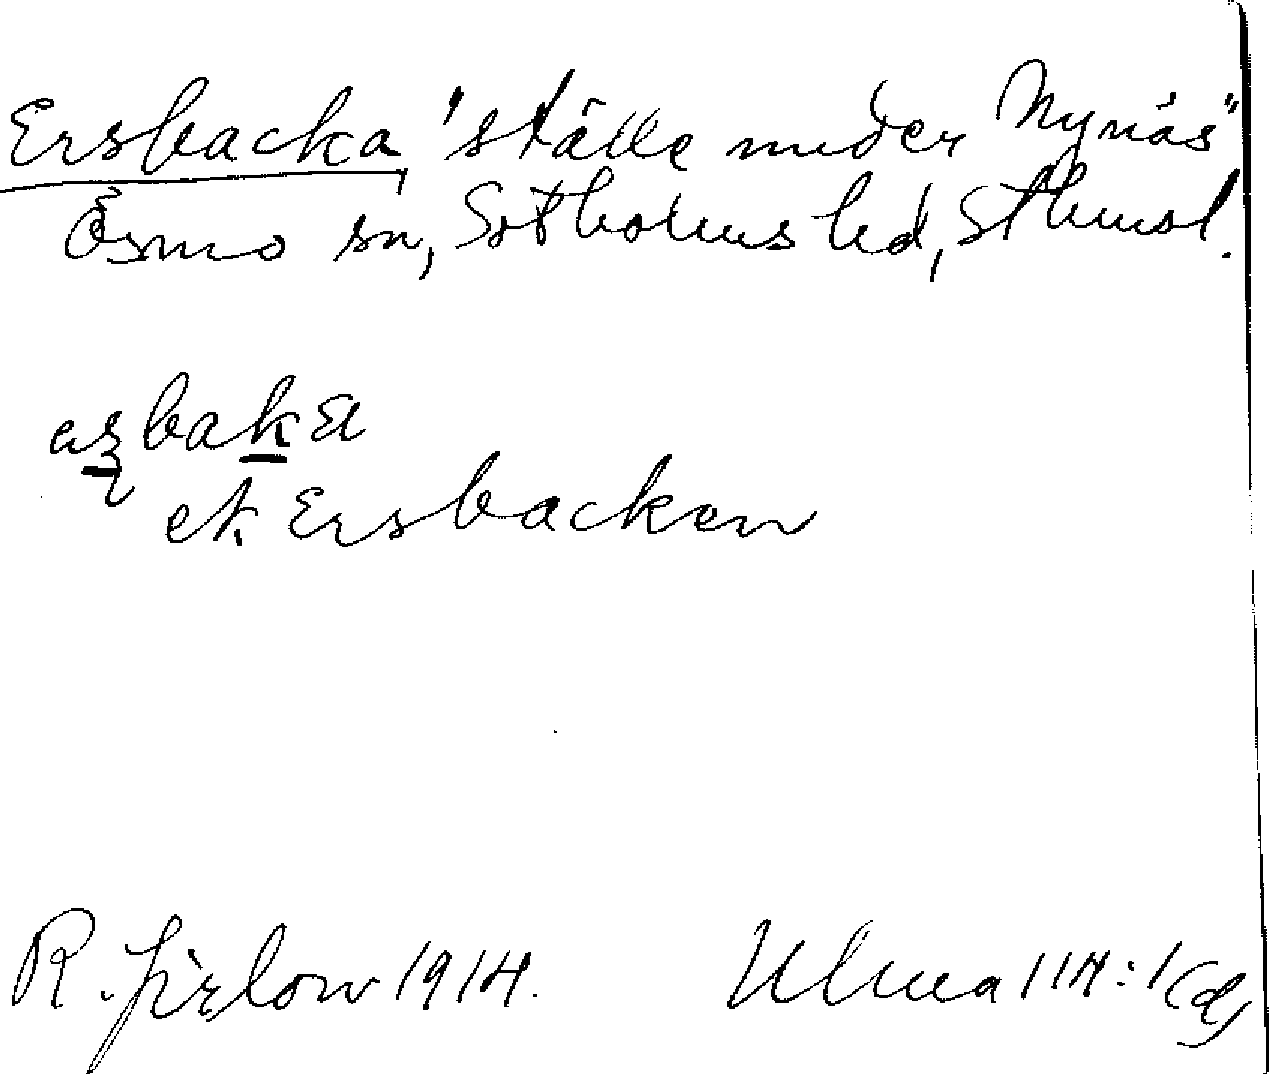 Ersbacka, "ställe under Nynäs"
Ösmo sn, Sotholms hd, Sthmsl.
ek. Ersbacken
R. Jirlow 1914. Ulma 114:1(d)